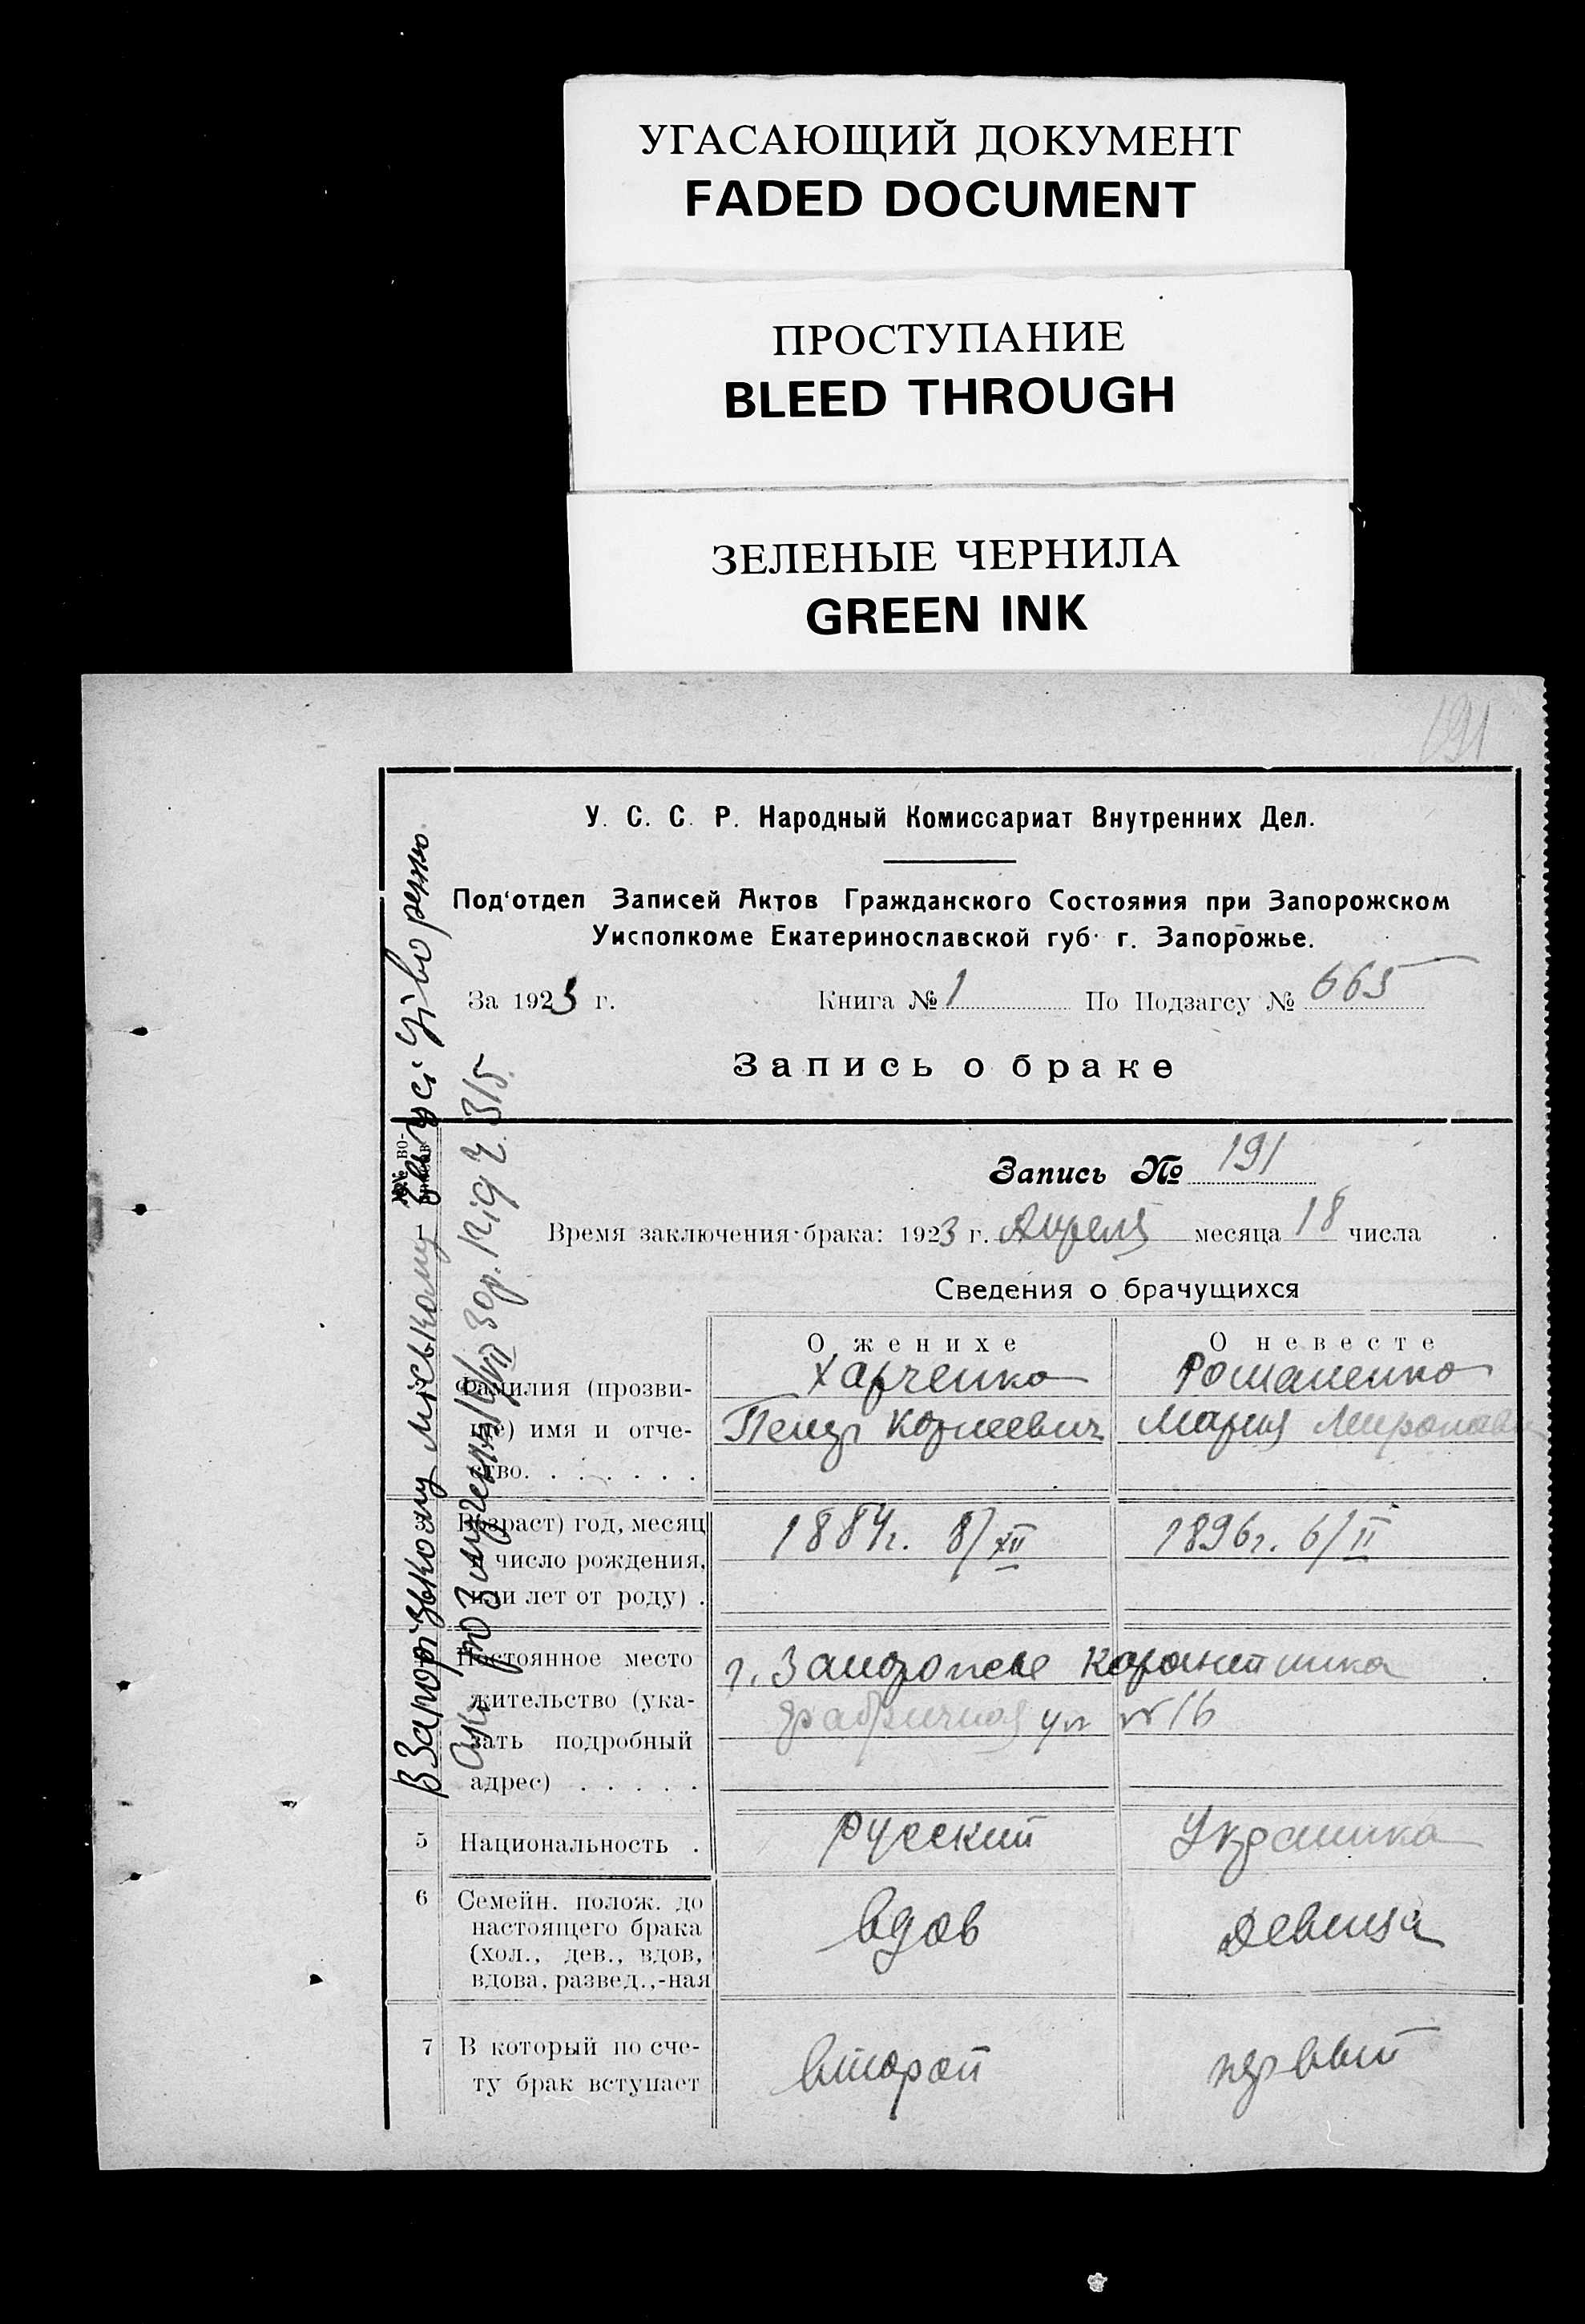 УГАСАЮЩИЙ ДОКУМЕНТ
FADED DOCUMENT
ПРОСТУПАНИЕ
BLEED THROUGH
ЗЕЛЕНЫЕ ЧЕРНИЛА
GREEN INK
191
У. С. С. Р. Народный Комиссариат Внутренних Дел.
Под'отдел Записей Актов Гражданского Состояния при Запорожском
Уисполкоме Екатеринославской губ. г. Запорожье.
За 1923 г. Книга № 1 По Подзагсу № 665
Запись о браке
Запись № 191
Время заключения брака: 1923 г. Апреля месяца 18 числа
Сведения о брачущихся
О женихе О невесте
Фамилия (прозви- Харченко Романенко
ще) имя и отче- Петр Корнеевич Мария
ство. . . . . . .
Возраст) год, месяц 1884г. 8/XII 1896г. 6/II
число рождения,
или лет от роду) .
Постоянное место г. Запорожье
жительство (ука- ул №16
зать подробный
адрес) . . . . .
5 Национальность . Русский Украинка
6 Семейн. полож. до
настоящего брака вдов девица
(хол., дев., вдов,
вдова, развед.,-ная
7 В который по сче- второй первый
ту брак вступает
В Запорізькому міському